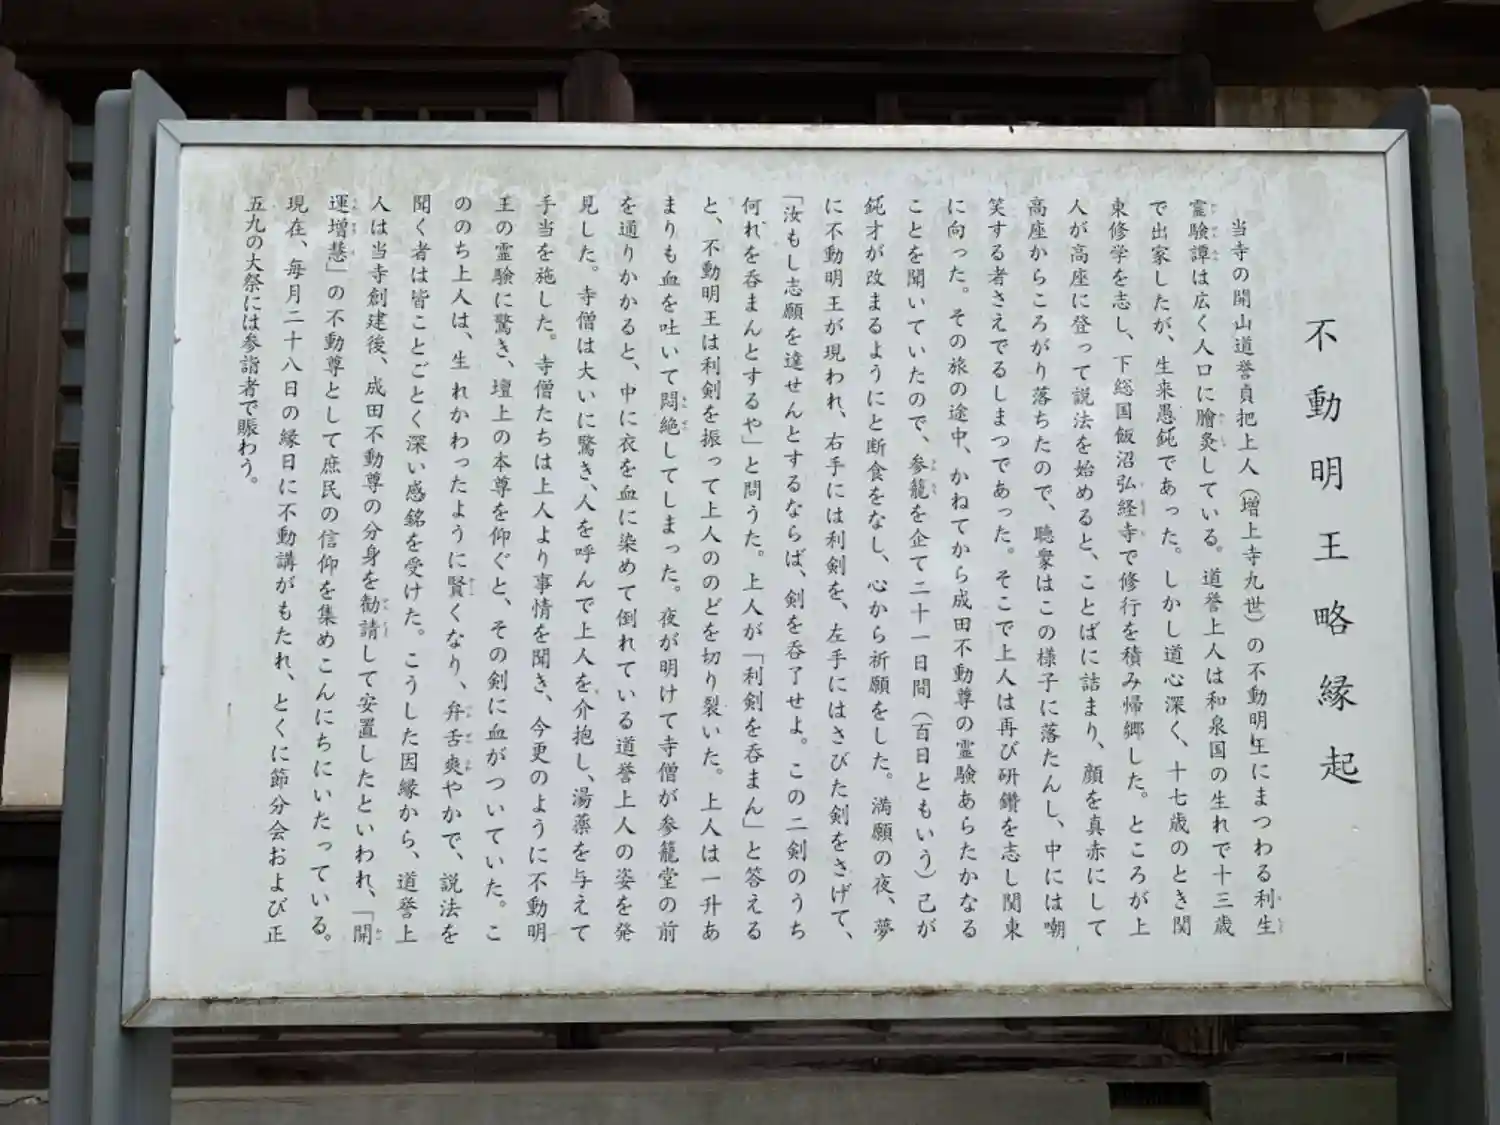 不動明王略縁起
当寺の開山道誉貞把上人（増上寺九世）の不動明王にまつわる利生
霊験譚は広く人口に膾炙している。道誉上人は和泉国の生れで十三歳
で出家したが、生来愚鈍であった。しかし道心深く、十七歳のとき関
東修学を志し、下総国飯沼弘経寺で修行を積み帰郷した。ところが上
人が高座に登って説法を始めると、ことばに詰まり、顔を真赤にして
高座からころがり落ちたので、聴衆はこの様子に落たんし、中には嘲
笑する者さえでるしまつであった。そこで上人は再び研鑽を志し関東
に向った。その旅の途中、かねてから成田不動尊の霊験あらたかなる
ことを聞いていたので、参籠を企て二十一日間（百日ともいう）己が
鈍才が改まるようにと断食をなし、心から祈願をした。満願の夜、夢
に不動明王が現われ、右手には利剣を、左手にはさびた剣をさげて、
「汝もし志願を達せんとするならば、剣を呑了せよ。この二剣のうち
何れを呑まんとするや」と問うた。上人が「利剣を呑まん」と答える
と、不動明王は利剣を振って上人ののどを切り裂いた。上人は一升あ
まりも血を吐いて悶絶してしまった。夜が明けて寺僧が参籠堂の前
を通りかかると、中に衣を血に染めて倒れている道誉上人の姿を発
見した。寺僧は大いに驚き、人を呼んで上人を介抱し、湯薬を与えて
手当を施した。寺僧たちは上人より事情を聞き、今更のように不動明
王の霊験に驚き、壇上の本尊を仰ぐと、その剣に血がついていた。こ
ののち上人は、生れかわったように賢くなり、弁舌爽やかで、説法を
聞く者は皆ことごとく深い感銘を受けた。こうした因縁から、道誉上
人は当寺創建後、成田不動尊の分身を勧請して安置したといわれ、「開
運増慧」の不動尊として庶民の信仰を集めこんにちにいたっている。
現在、毎月二十八日の縁日に不動講がもたれ、とくに節分会および正
五九の大祭には参詣者で賑わう。